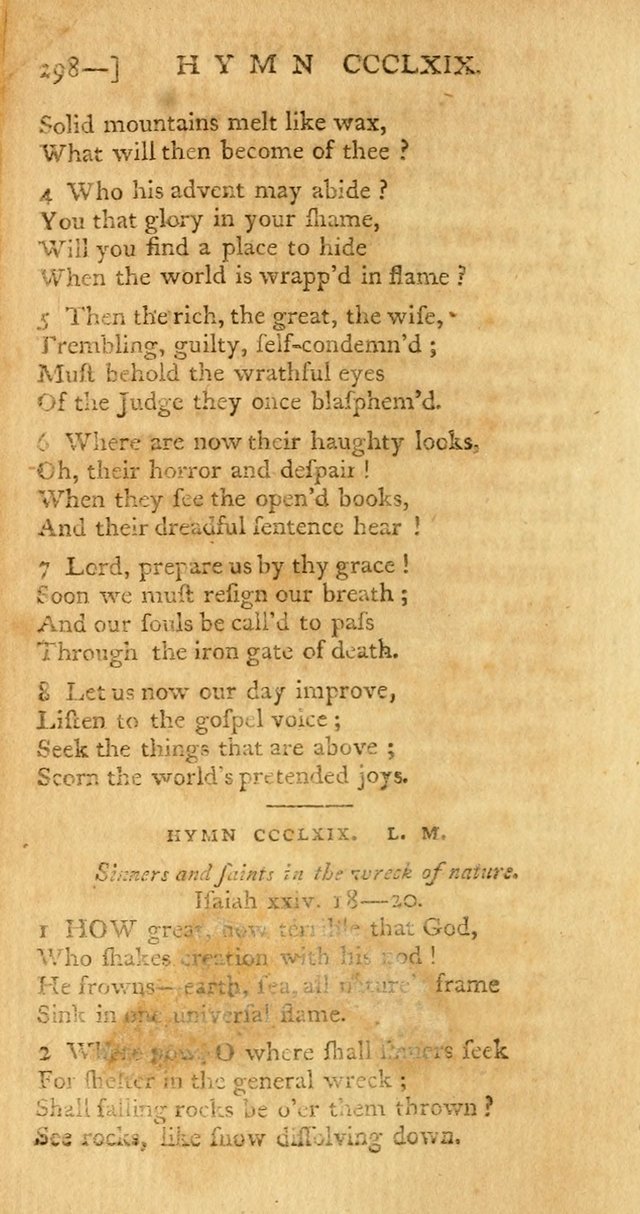 298—] HYMN CCCLXIX.
Solid mountains melt like wax,
What will then become of thee ?
4 Who his advent may abide ?
You that glory in your ſhame,
Will you find a place to hide
When the world is wrapp'd in flame ?
5 Then the rich, the great, the wiſe,
Trembling, guilty, ſelf-condemn'd ;
Muſt behold the wrathful eyes
Of the Judge they once blaſphem'd.
6 Where are now their haughty looks,
Oh, their horror and deſpair !
When they ſee the open'd books,
And their dreadful ſentence hear !
7 Lord, prepare us by thy grace !
Soon we muſt reſign our breath ;
And our ſouls be call'd to paſs
Through the iron gate of death.
8 Let us now our day improve,
Liſten to the goſpel voice ;
Seek the things that are above ;
Scorn the world's pretended joys.
HYMN CCCLXIX. L. M.
Sinners and ſaints in the wreck of nature.
Iſaiah xxiv. 18—20.
1 HOW great, how terrible that God,
Who ſhakes creation with his nod !
He frowns—earth, ſea, all nature's frame
Sink in one univerſal flame.
2 Where now, O where ſhall ſinners ſeek
For ſhelter in the general wreck ;
Shall falling rocks be o'er them thrown ?
See rocks, like ſnow diſſolving down.